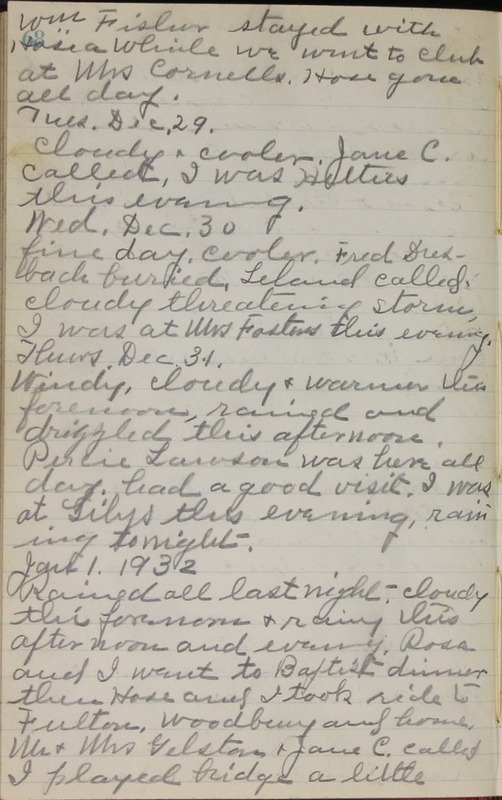 68
Wm Fisher stayed with
Hosea While we went to club
at Mrs Cornells. Hose gone
all day.
Tues. Dec, 29.
Cloudy & cooler. Jane C.
called, I was Hetties
this evening.
Wed. Dec. 30
fine day. cooler. Fred Dres-
back buried. Leland called.
cloudy threatening storm,
I was at Mrs Fosters this evening.
Thurs Dec 31.
Windy, cloudy & warmer this
forenoon, rained and
drizzled this afternoon.
Lawson was here all
day. had a good visit. I was
at Lilys this evening, rain
ing tonight.
Jan 1. 1932
Rained all last night. cloudy
this forenoon & rainy this
afternoon and evening. Rosa
and I want to Baptist dinner
then Hose and I took ride to
Fulton, Woodbury and home.
Mr & Mrs Gelston & Jane C. called
I played bridge a little